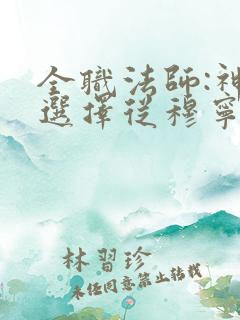 全職法師:神
選擇從穆寧
林習珍
未任同意禁止轉載